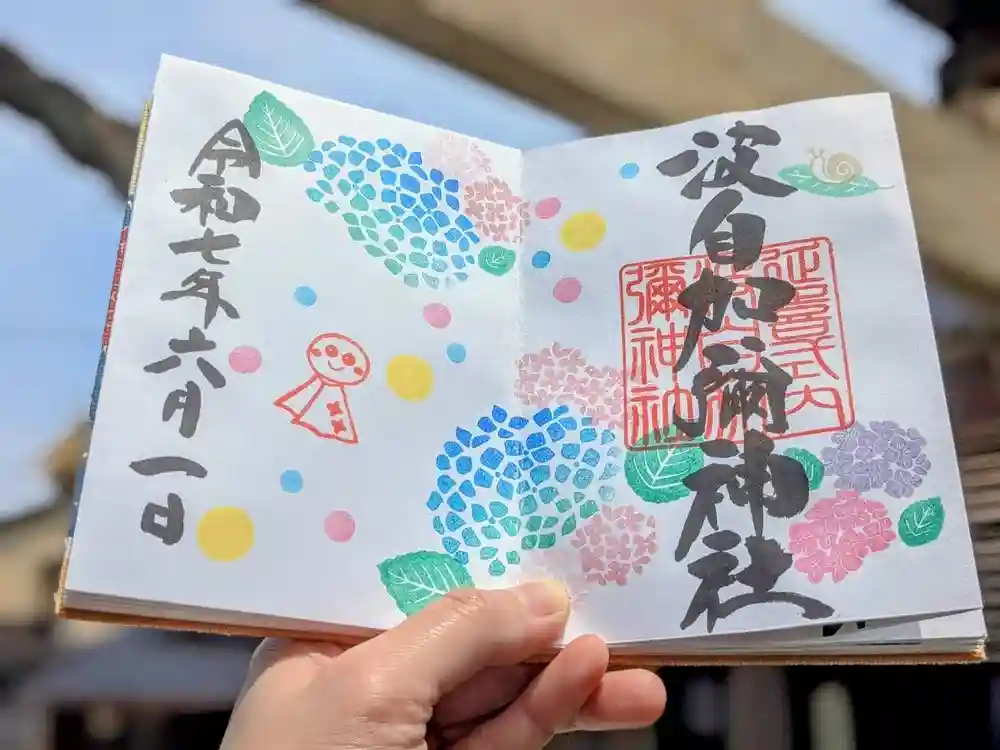 波自加彌神社
延喜式内
波自加
彌神社
令和七年六月一日